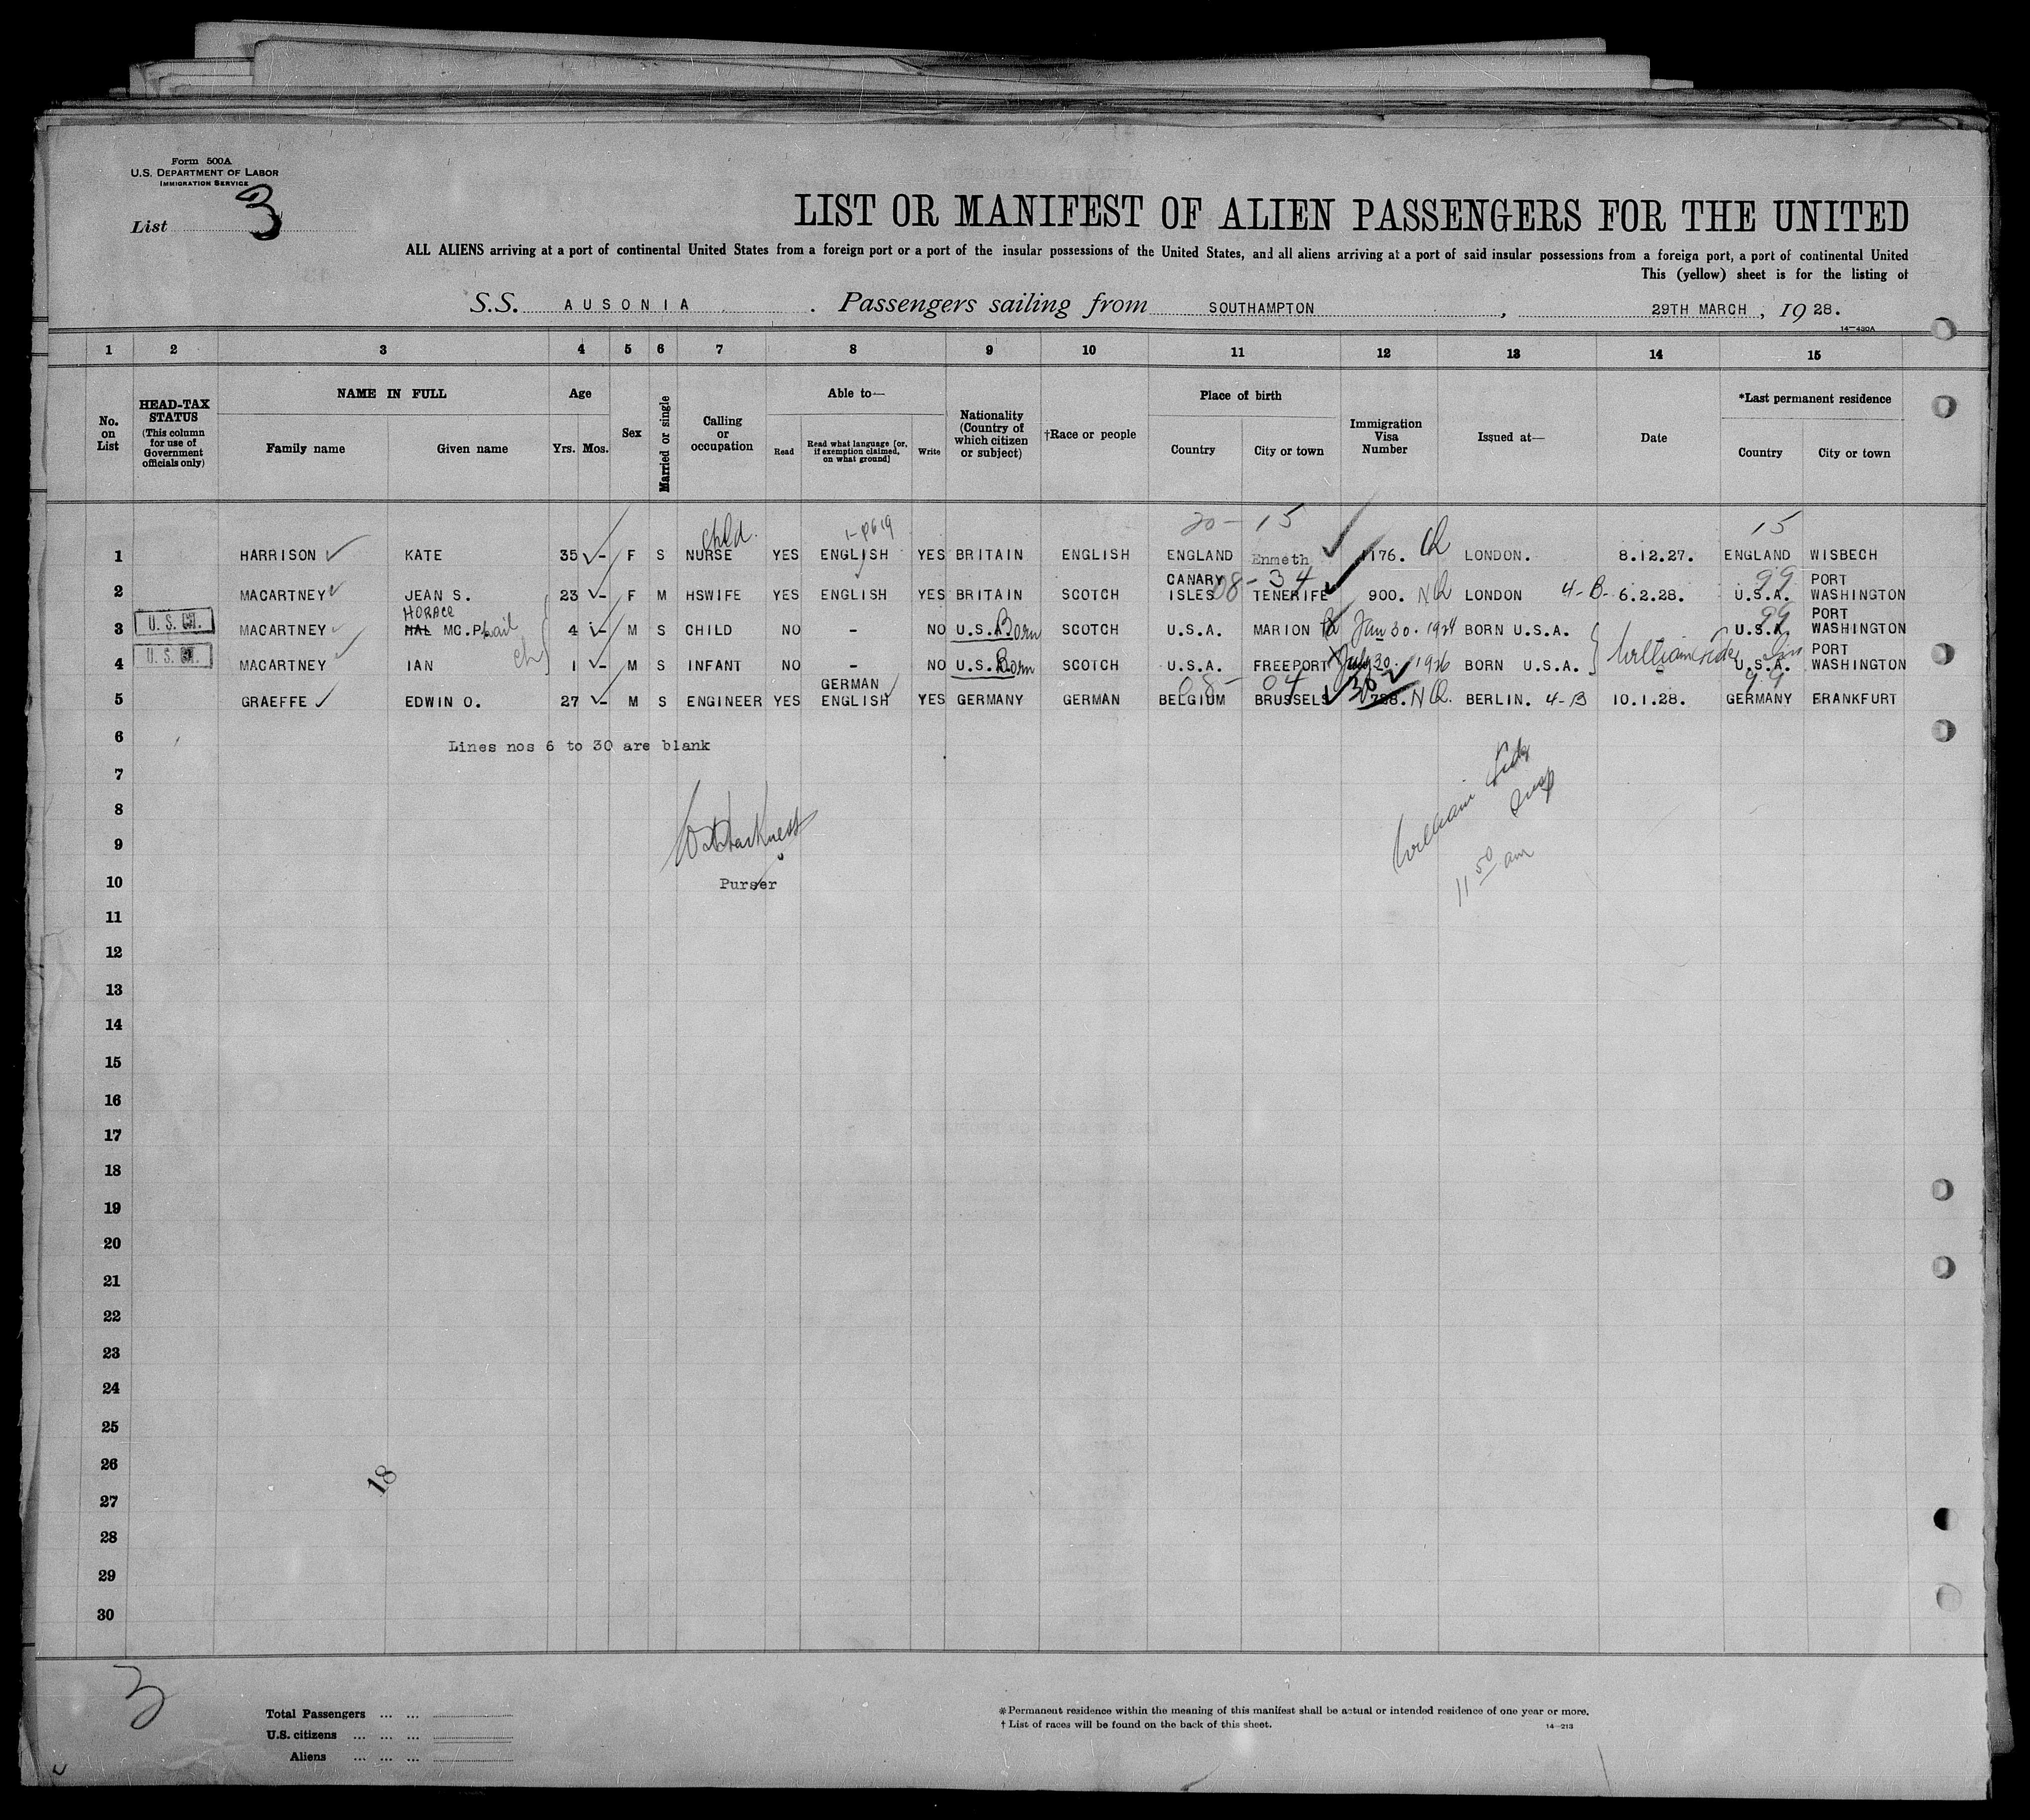 Form 500A
U.S. DEPARTMENT OF LABOR
IMMIGRATION SERVICE
List 3
LIST OR MANIFEST OF ALIEN PASSENGERS FOR THE UNITED
ALL ALIENS arriving at a port of continental United States from a foreign port or a port of the insular possessions of the United States, and all aliens arriving at a port of said insular possessions from a foreign port, a port of continental United
This (yellow) sheet is for the listing of
S.S. AUSONIA . Passengers sailing from SOUTHAMPTON , 29TH MARCH , 19 28.
14—430A
1 2 3 4 5 6 7 8 9 10 11 12 13 14 15
No. on List
HEAD-TAX STATUS (This column for use of Government officials only)
NAME IN FULL
Family name Given name
Age
Yrs. Mos.
Sex
Married or single
Calling or occupation
Able to—
Read Read what language [or, if exemption claimed, on what ground] Write
Nationality (Country of which citizen or subject)
†Race or people
Place of birth
Country City or town
Immigration Visa Number
Issued at—
Date
*Last permanent residence
Country City or town
20 - 15 15
Child.
1 HARRISON KATE 35 - F S NURSE YES ENGLISH YES BRITAIN ENGLISH ENGLAND Enmeth 1176. LONDON. 8.12.27. ENGLAND WISBECH
08 - 34 99
2 MACARTNEY JEAN S. 23 - F M HSWIFE YES ENGLISH YES BRITAIN SCOTCH CANARY ISLES TENERIFE 900. LONDON 4-B- 6.2.28. U.S.A. PORT WASHINGTON
HORACE 99
3 U.S. CIT. MACARTNEY HAL MC.Phail 4 - M S CHILD NO - NO U.S. Born SCOTCH U.S.A. MARION Jan 30. 1924 BORN U.S.A. U.S.A. PORT WASHINGTON
4 U.S. CIT. MACARTNEY IAN 1 - M S INFANT NO - NO U.S. Born SCOTCH U.S.A. FREEPORT July 30. 1926 BORN U.S.A. William U.S.A. PORT WASHINGTON
08 - 04 30 99
5 GRAEFFE EDWIN O. 27 - M S ENGINEER YES GERMAN ENGLISH YES GERMANY GERMAN BELGIUM BRUSSELS 788. BERLIN. 4-B 10.1.28. GERMANY FRANKFURT
6 Lines nos 6 to 30 are blank
7
8
9
10 Purser
William
11 50 am
11
12
13
14
15
16
17
18
19
20
21
22
23
24
25
26
18
27
28
29
30
3
Total Passengers ... ...
U.S. citizens ... ... ...
Aliens ... ... ...
* Permanent residence within the meaning of this manifest shall be actual or intended residence of one year or more.
† List of races will be found on the back of this sheet.
14—213